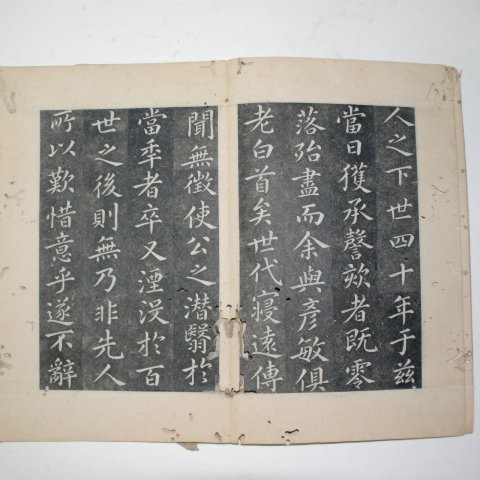 人之下世四十年于兹
當日獲承謦欬者既零
落殆盡而余與彥敏俱
老白首矣世代寖遠傳
聞無徵使公之潛翳於
當季者卒又湮没於百
世之後則無乃非先人
所以歎惜意乎遂不辭